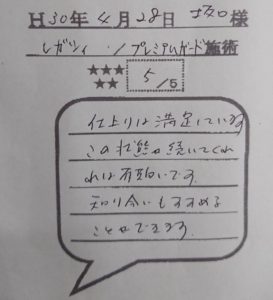 H30年4月28日 坂口様
レガシィ / プレミアムガード施術
★★★
★★
5/5
仕上りは満足しています
この状態が続いてくれ
れば有難いです
知り合いもすすめる
ことができます